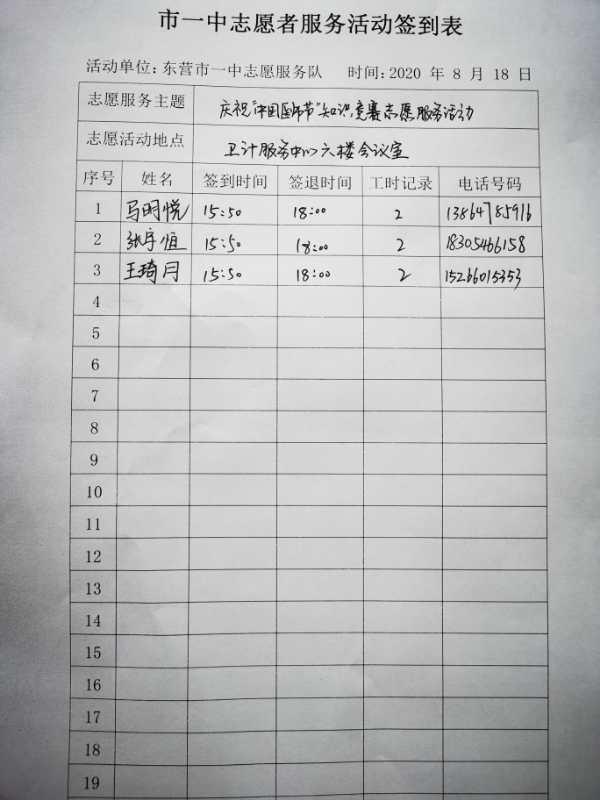 市一中志愿者服务活动签到表
活动单位: 东营市一中志愿服务队 时间: 2020 年 8 月 18 日
志愿服务主题 庆祝“中国医师节”知识竞赛志愿服务活动
志愿活动地点 卫计服务中心六楼会议室
序号 姓名 签到时间 签退时间 工时记录 电话号码
1 马明悦 15:50 18:00 2 13864785916
2 张宇恒 15:50 18:00 2 18305466158
3 王琦月 15:50 18:00 2 15266015353
4
5
6
7
8
9
10
11
12
13
14
15
16
17
18
19